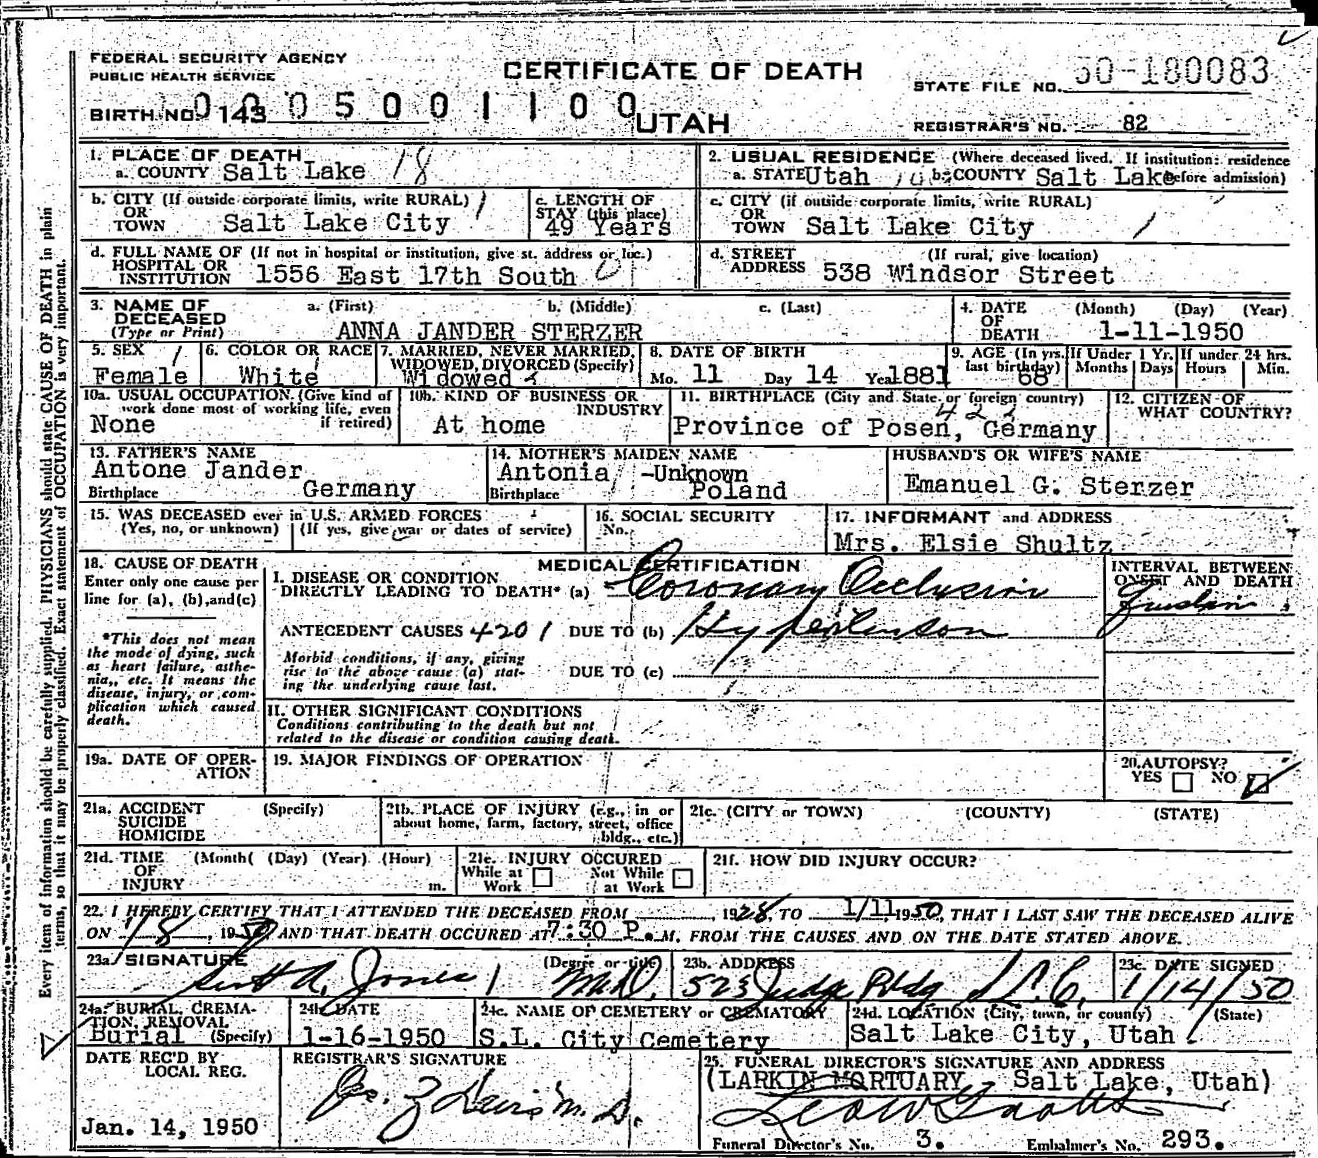 FEDERAL SECURITY AGENCY
PUBLIC HEALTH SERVICE
CERTIFICATE OF DEATH
UTAH
STATE FILE NO. 50-180083
BIRTH NO. 143 0005001100
REGISTRAR'S NO. 82
1. PLACE OF DEATH
a. COUNTY Salt Lake 18
2. USUAL RESIDENCE (Where deceased lived. If institution: residence before admission)
a. STATE Utah b. COUNTY Salt Lake
b. CITY (If outside corporate limits, write RURAL)
OR
TOWN Salt Lake City
c. LENGTH OF
STAY (this place)
49 Years
c. CITY (if outside corporate limits, write RURAL)
OR
TOWN Salt Lake City
d. FULL NAME OF (If not in hospital or institution, give st. address or loc.)
HOSPITAL OR
INSTITUTION 1556 East 17th South
d. STREET (If rural, give location)
ADDRESS 538 Windsor Street
3. NAME OF DECEASED
(Type or Print)
a. (First) b. (Middle) c. (Last)
ANNA JANDER STERZER
4. DATE OF DEATH (Month) (Day) (Year)
1-11-1950
5. SEX
Female
6. COLOR OR RACE
White
7. MARRIED, NEVER MARRIED,
WIDOWED, DIVORCED (Specify)
Widowed
8. DATE OF BIRTH
Mo. 11 Day 14 Year 1881
9. AGE (In yrs. last birthday)
68
If Under 1 Yr. Months Days
If under 24 hrs. Hours Min.
10a. USUAL OCCUPATION (Give kind of
work done most of working life, even
if retired)
None
10b. KIND OF BUSINESS OR
INDUSTRY
At home
11. BIRTHPLACE (City and State or foreign country)
422
Province of Posen, Germany
12. CITIZEN OF
WHAT COUNTRY?
13. FATHER'S NAME
Antone Jander
Birthplace Germany
14. MOTHER'S MAIDEN NAME
Antonia -Unknown
Birthplace Poland
HUSBAND'S OR WIFE'S NAME
Emanuel G. Sterzer
15. WAS DECEASED ever in U.S. ARMED FORCES
(Yes, no, or unknown) (If yes, give war or dates of service)
16. SOCIAL SECURITY
No.
17. INFORMANT and ADDRESS
Mrs. Elsie Shultz
18. CAUSE OF DEATH
Enter only one cause per
line for (a), (b), and (c)
*This does not mean
the mode of dying, such
as heart failure, asthe-
nia, etc. It means the
disease, injury, or com-
plication which caused
death.
MEDICAL CERTIFICATION
I. DISEASE OR CONDITION
DIRECTLY LEADING TO DEATH* (a) Coronary Occlusion
ANTECEDENT CAUSES 4201 DUE TO (b) Hypertension
Morbid conditions, if any, giving
rise to the above cause (a) stat-
ing the underlying cause last.
DUE TO (c)
II. OTHER SIGNIFICANT CONDITIONS
Conditions contributing to the death but not
related to the disease or condition causing death.
INTERVAL BETWEEN
ONSET AND DEATH
19a. DATE OF OPER-
ATION
19. MAJOR FINDINGS OF OPERATION
20. AUTOPSY?
YES NO
21a. ACCIDENT (Specify)
SUICIDE
HOMICIDE
21b. PLACE OF INJURY (e.g., in or
about home, farm, factory, street, office
bldg., etc.)
21c. (CITY or TOWN) (COUNTY) (STATE)
21d. TIME (Month( (Day) (Year) (Hour)
OF
INJURY m.
21e. INJURY OCCURED
While at Work Not While at Work
21f. HOW DID INJURY OCCUR?
22. I HEREBY CERTIFY THAT I ATTENDED THE DECEASED FROM 1928, TO 1/11 1950, THAT I LAST SAW THE DECEASED ALIVE
ON 1/8, 1950 AND THAT DEATH OCCURED AT 7:30 P.M. FROM THE CAUSES AND ON THE DATE STATED ABOVE.
23a. SIGNATURE (Degree or title)
Jones M.D.
23b. ADDRESS
523 Judge Bldg S.L.C.
23c. DATE SIGNED
1/14/50
24a. BURIAL, CREMA-
TION, REMOVAL
Burial (Specify)
24b. DATE
1-16-1950
24c. NAME OF CEMETERY or CREMATORY
S.L. City Cemetery
24d. LOCATION (City, town, or county) (State)
Salt Lake City, Utah
DATE REC'D BY
LOCAL REG.
Jan. 14, 1950
REGISTRAR'S SIGNATURE
M.D.
25. FUNERAL DIRECTOR'S SIGNATURE AND ADDRESS
(LARKIN MORTUARY, Salt Lake, Utah)
Funeral Director's No. 3. Embalmer's No. 293.
Every item of information should be carefully supplied. PHYSICIANS should state CAUSE OF DEATH in plain
terms, so that it may be properly classified. Exact statement of OCCUPATION is very important.